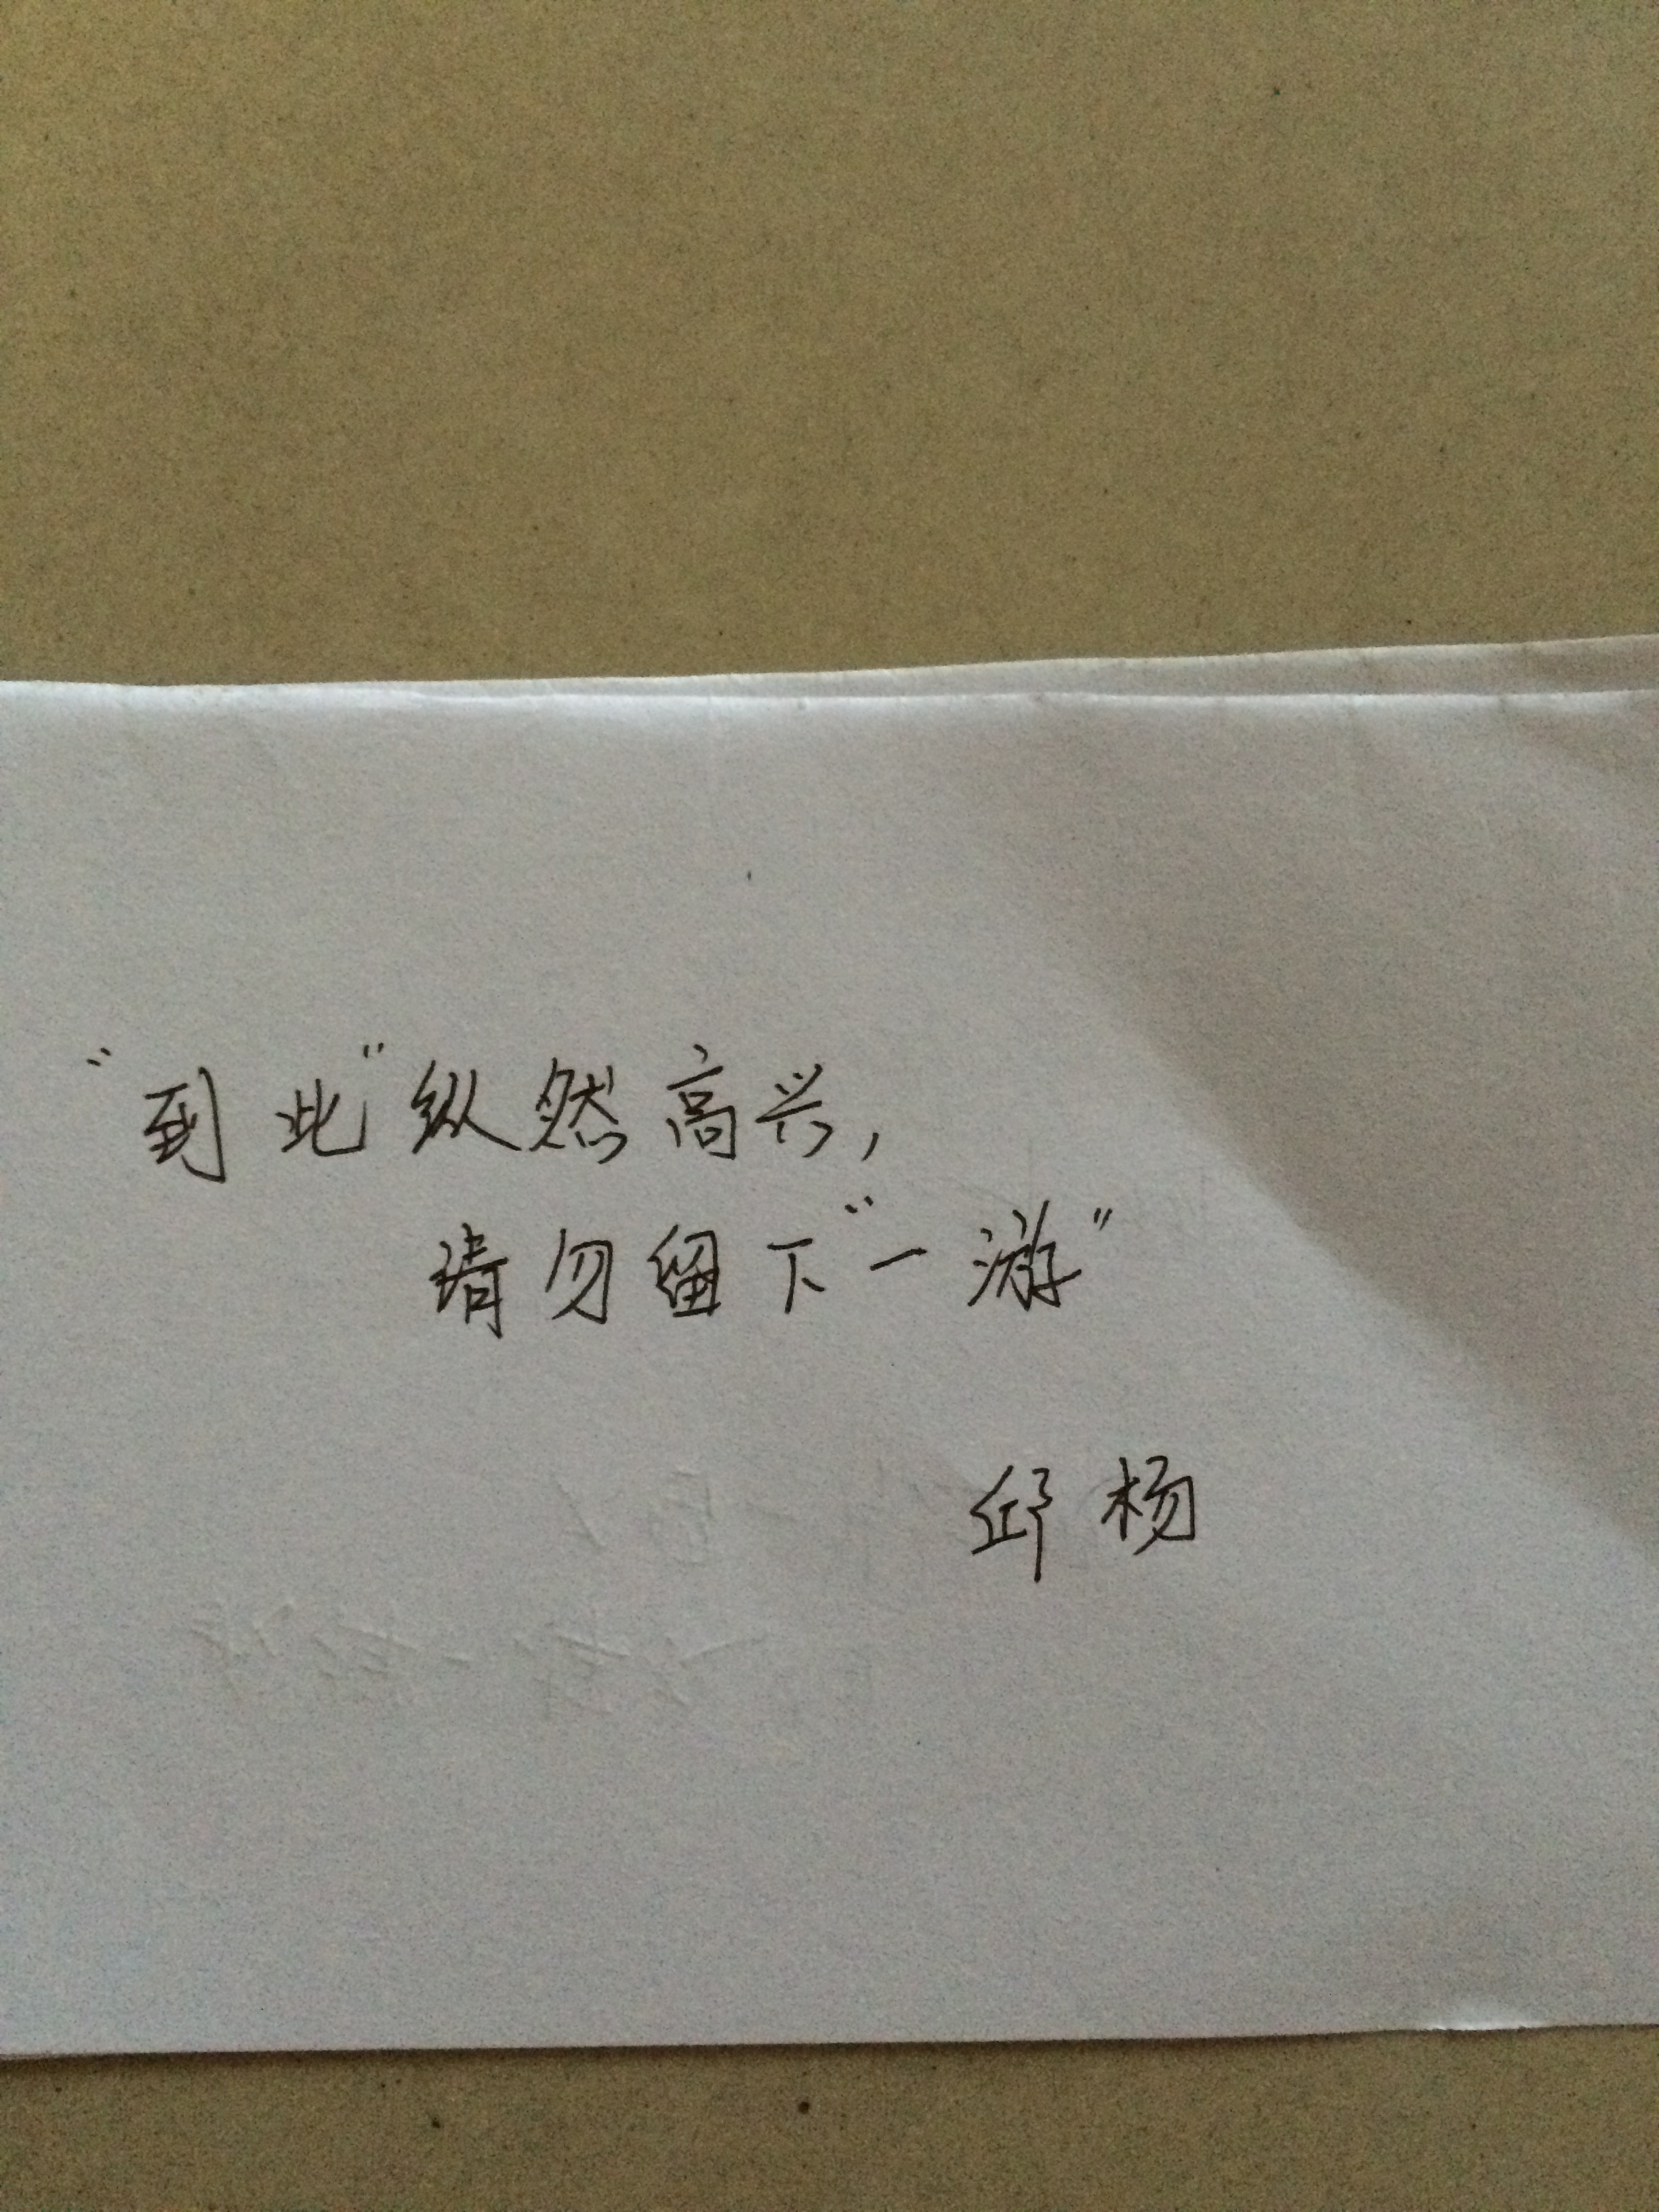 “到此”纵然高兴，
请勿留下“一游”
邱杨